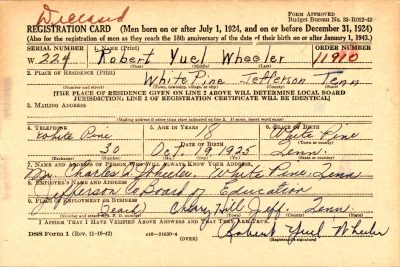 Diseased
FORM APPROVED
Budget Bureau No. 33-R012-42
REGISTRATION CARD (Men born on or after July 1, 1924, and on or before December 31, 1924)
(Also for the registration of men as they reach the 18th anniversary of the date of their birth on or after January 1, 1943.)
SERIAL NUMBER 1. NAME (Print) ORDER NUMBER
W 224 Robert Yuel Wheeler 11910
(First) (Middle) (Last)
2. PLACE OF RESIDENCE (Print)
White Pine Jefferson Tenn
(Number and street) (Town, township, village, or city) (County) (State)
[THE PLACE OF RESIDENCE GIVEN ON LINE 2 ABOVE WILL DETERMINE LOCAL BOARD
JURISDICTION; LINE 2 OF REGISTRATION CERTIFICATE WILL BE IDENTICAL]
3. MAILING ADDRESS
[Mailing address if other than place indicated on line 2. If same, insert word same]
4. TELEPHONE 5. AGE IN YEARS 6. PLACE OF BIRTH
White Pine 18 White Pine
DATE OF BIRTH
30 Oct 19 1925 Tenn.
7. NAME AND ADDRESS OF PERSON WHO WILL ALWAYS KNOW YOUR ADDRESS
Mr. Charles A. Wheeler, White Pine Tenn
8. EMPLOYER'S NAME AND ADDRESS
Jefferson Co Board of Education
9. PLACE OF EMPLOYMENT OR BUSINESS
(Teach) Cherry Hill Jeff Tenn.
I AFFIRM THAT I HAVE VERIFIED ABOVE ANSWERS AND THAT THEY ARE TRUE.
DSS Form 1 (Rev. 11-16-42) Robert Yuel Wheeler
(Registrant's signature)